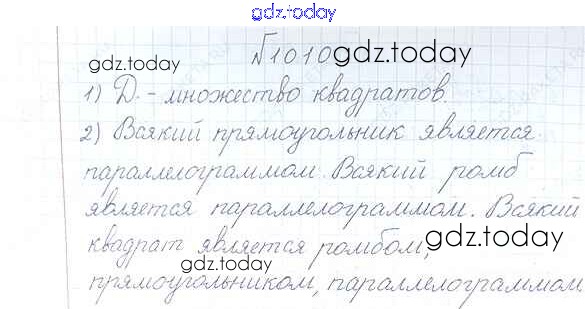 gdz.today
№1010 gdz.today
gdz.today
1) D. - множество квадратов
2) Всякий прямоугольник является
параллелограммом. Всякий ромб
является параллелограммом. Всякий
квадрат является ромбом, gdz.today
gdz.today
прямоугольником, параллелограммом